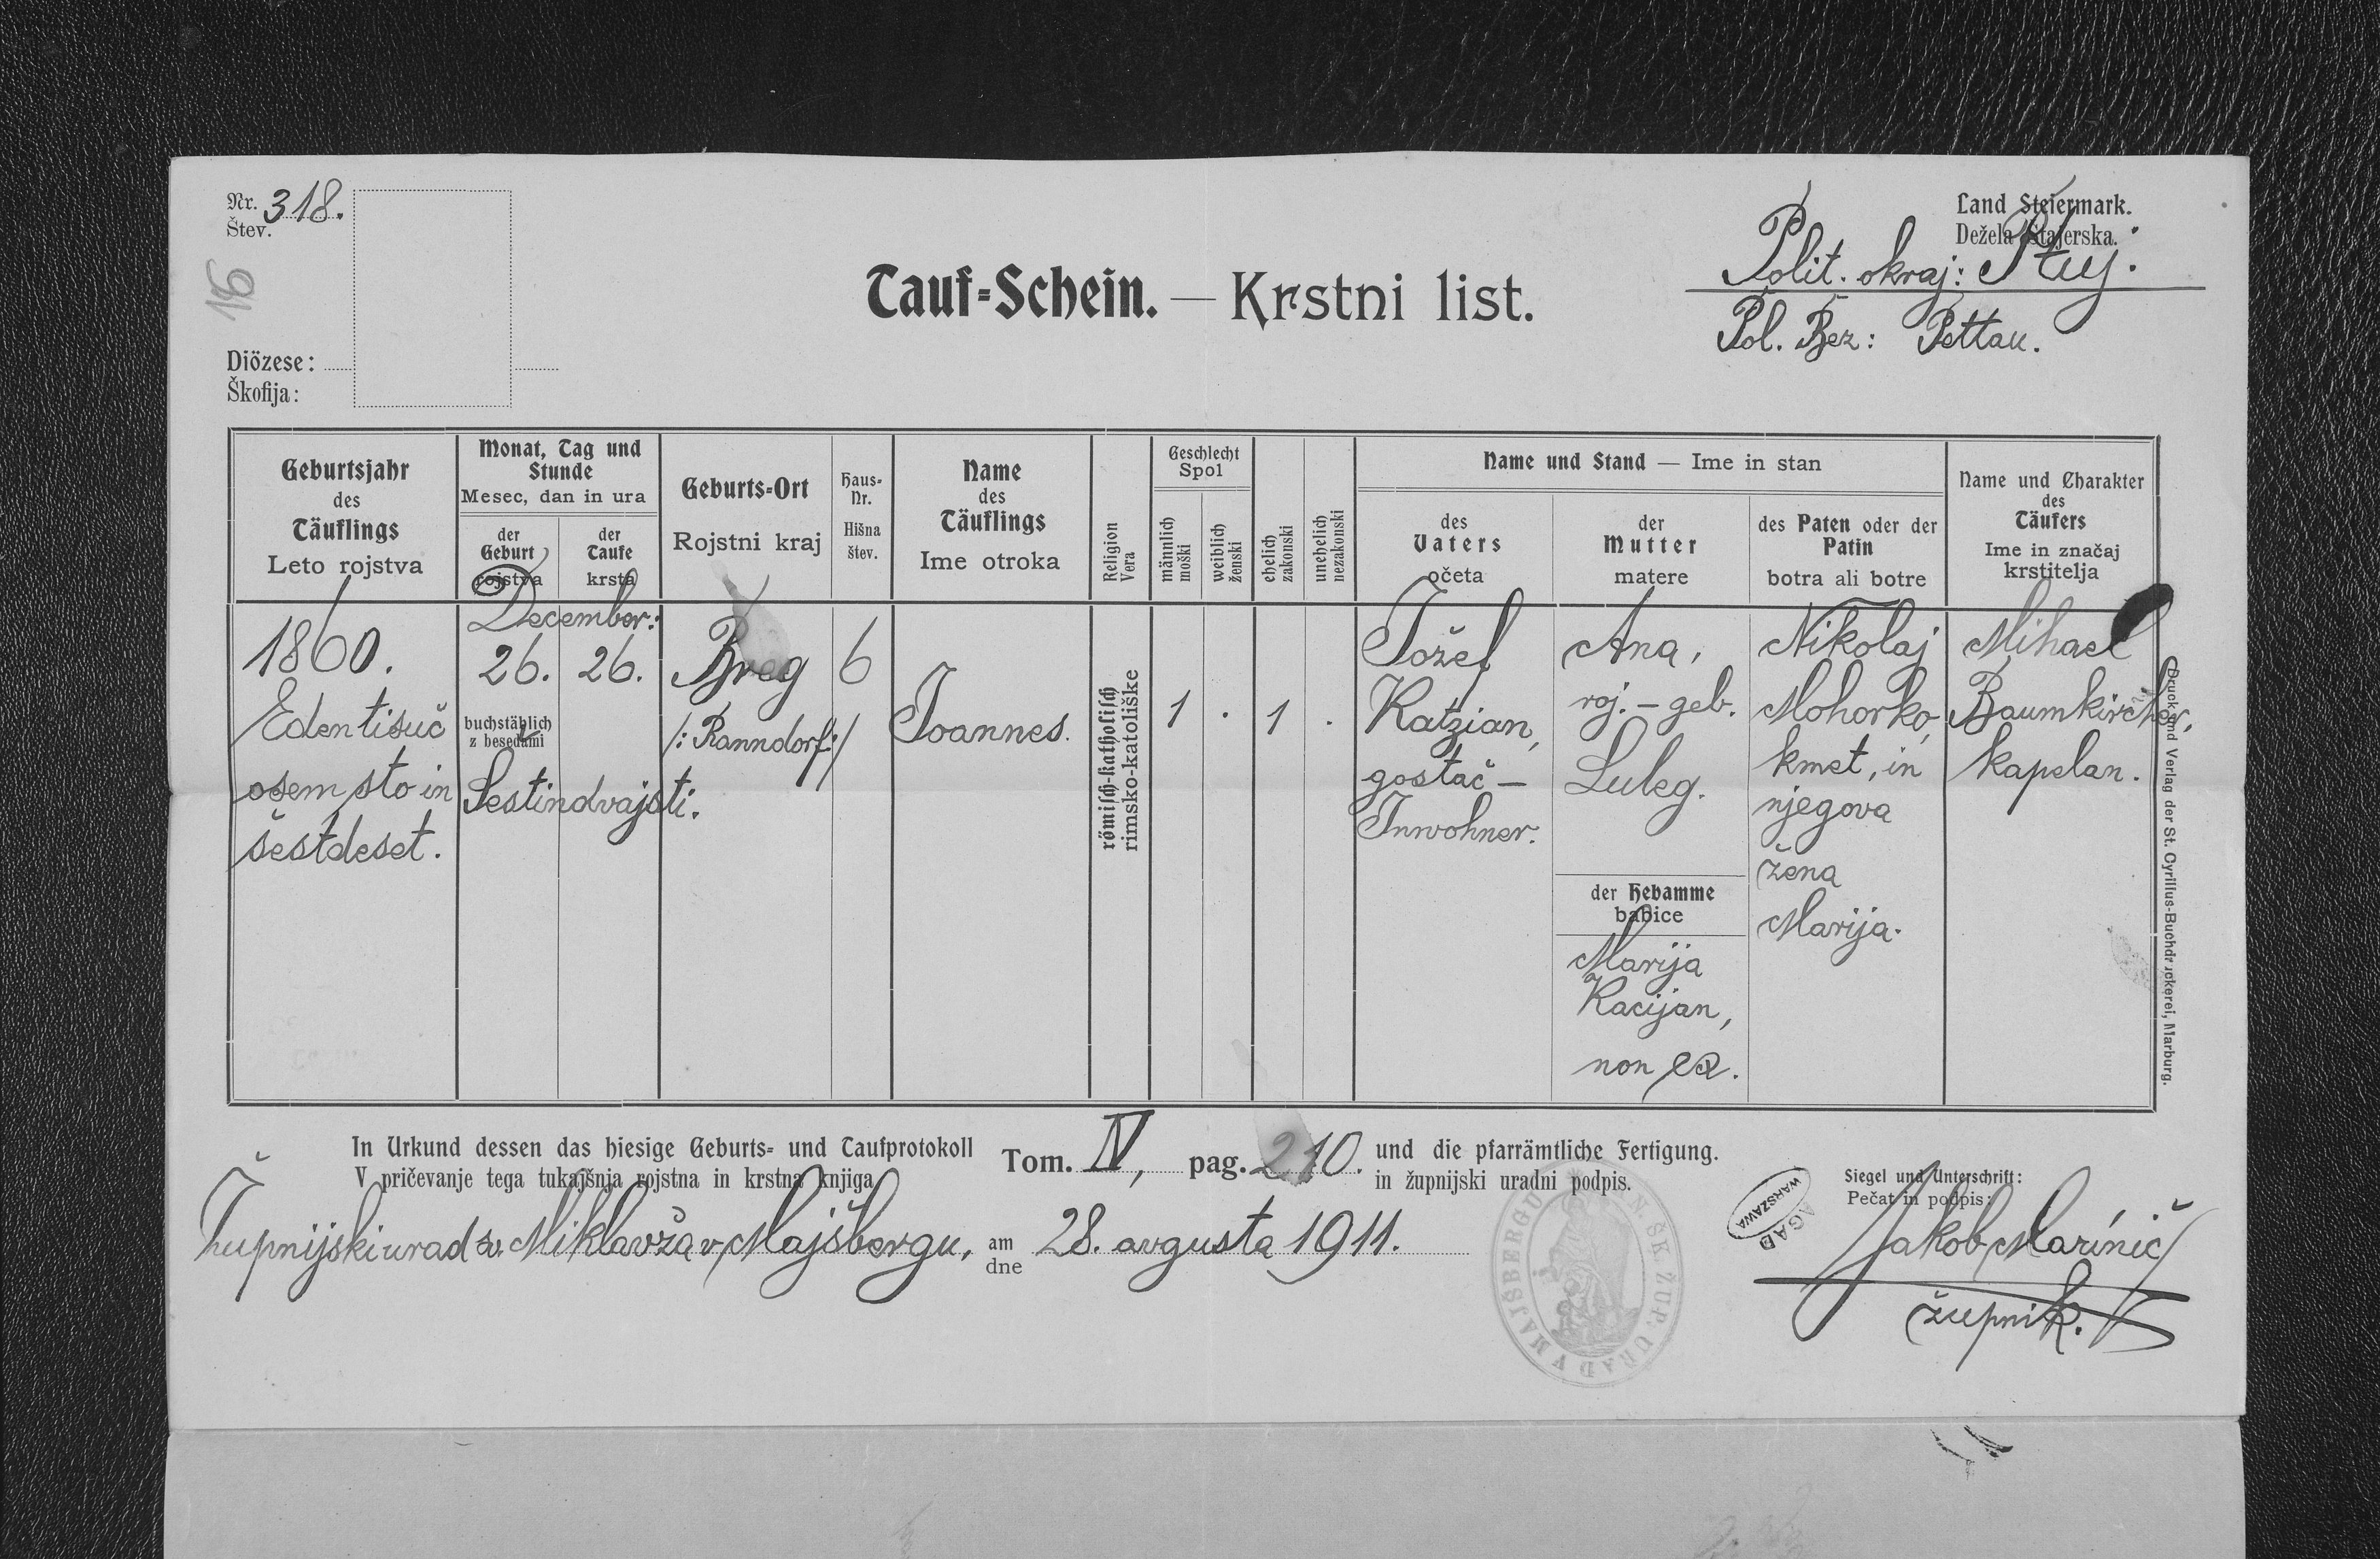 Nr. 318.
Štev.
91
Diözese:
Škofija:
Tauf=Schein. — Krstni list.
Land Steiermark.
Dežela Štajerska.
Polit. okraj: Ptuj.
Pol. Bez: Pettau.
Geburtsjahr
des
Täuflings
Leto rojstva
Monat, Tag und
Stunde
Mesec, dan in ura
der
Geburt
rojstva
der
Taufe
krsta
Geburts=Ort
Rojstni kraj
Haus=
Nr.
Hišna
štev.
Name
des
Täuflings
Ime otroka
Religion
Vera
Geschlecht
Spol
männlich
moški
weiblich
ženski
ehelich
zakonski
unehelich
nezakonski
Name und Stand — Ime in stan
des
Vaters
očeta
der
Mutter
matere
des Paten oder der
Patin
botra ali botre
Name und Charakter
des
Täufers
Ime in značaj
krstitelja
1860.
Eden tisuč
osem sto in
šestdeset.
December:
26. 26.
buchstäblich
z besedami
Šestindvajsti.
Breg
/: Ranndorf:/
6
Joannes.
römisch-katholisch
rimsko-katoliške
1 . 1 .
Jožef
Katzian,
gostač —
Inwohner.
Ana,
roj. – geb.
Luleg.
der Hebamme
babice
Marija
Kacijan,
non ex.
Nikolaj
Mohorko,
kmet, in
njegova
žena
Marija.
Mihael
Baumkircher,
kapelan.
Druck und Verlag der St. Cyrillus-Buchdruckerei, Marburg.
In Urkund dessen das hiesige Geburts= und Taufprotokoll Tom. IV, pag. 210. und die pfarrämtliche Fertigung.
V pričevanje tega tukajšnja rojstna in krstna knjiga in župnijski uradni podpis.
Župnijski urad sv. Miklavža v Majšbergu, am
dne 28. avgusta 1911.
Siegel und Unterschrift:
Pečat in podpis:
AGAD
WARSZAWA
ŠK. ŽUP. URAD V MAJŠBERGU
Jakob Marinič
župnik.